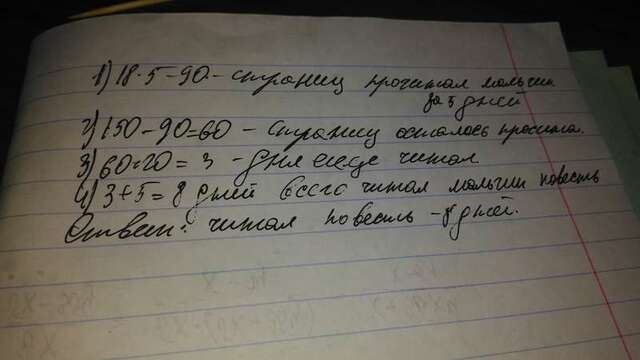 1) 18·5-90- страниц прочитал мальчик
за 5 дней
2) 150-90=60 - страниц осталось прочита.
3) 60:20= 3 - дня еще читал
4) 3+5= 8 дней всего читал мальчик повесть
Ответ: читал повесть - 8 дней.